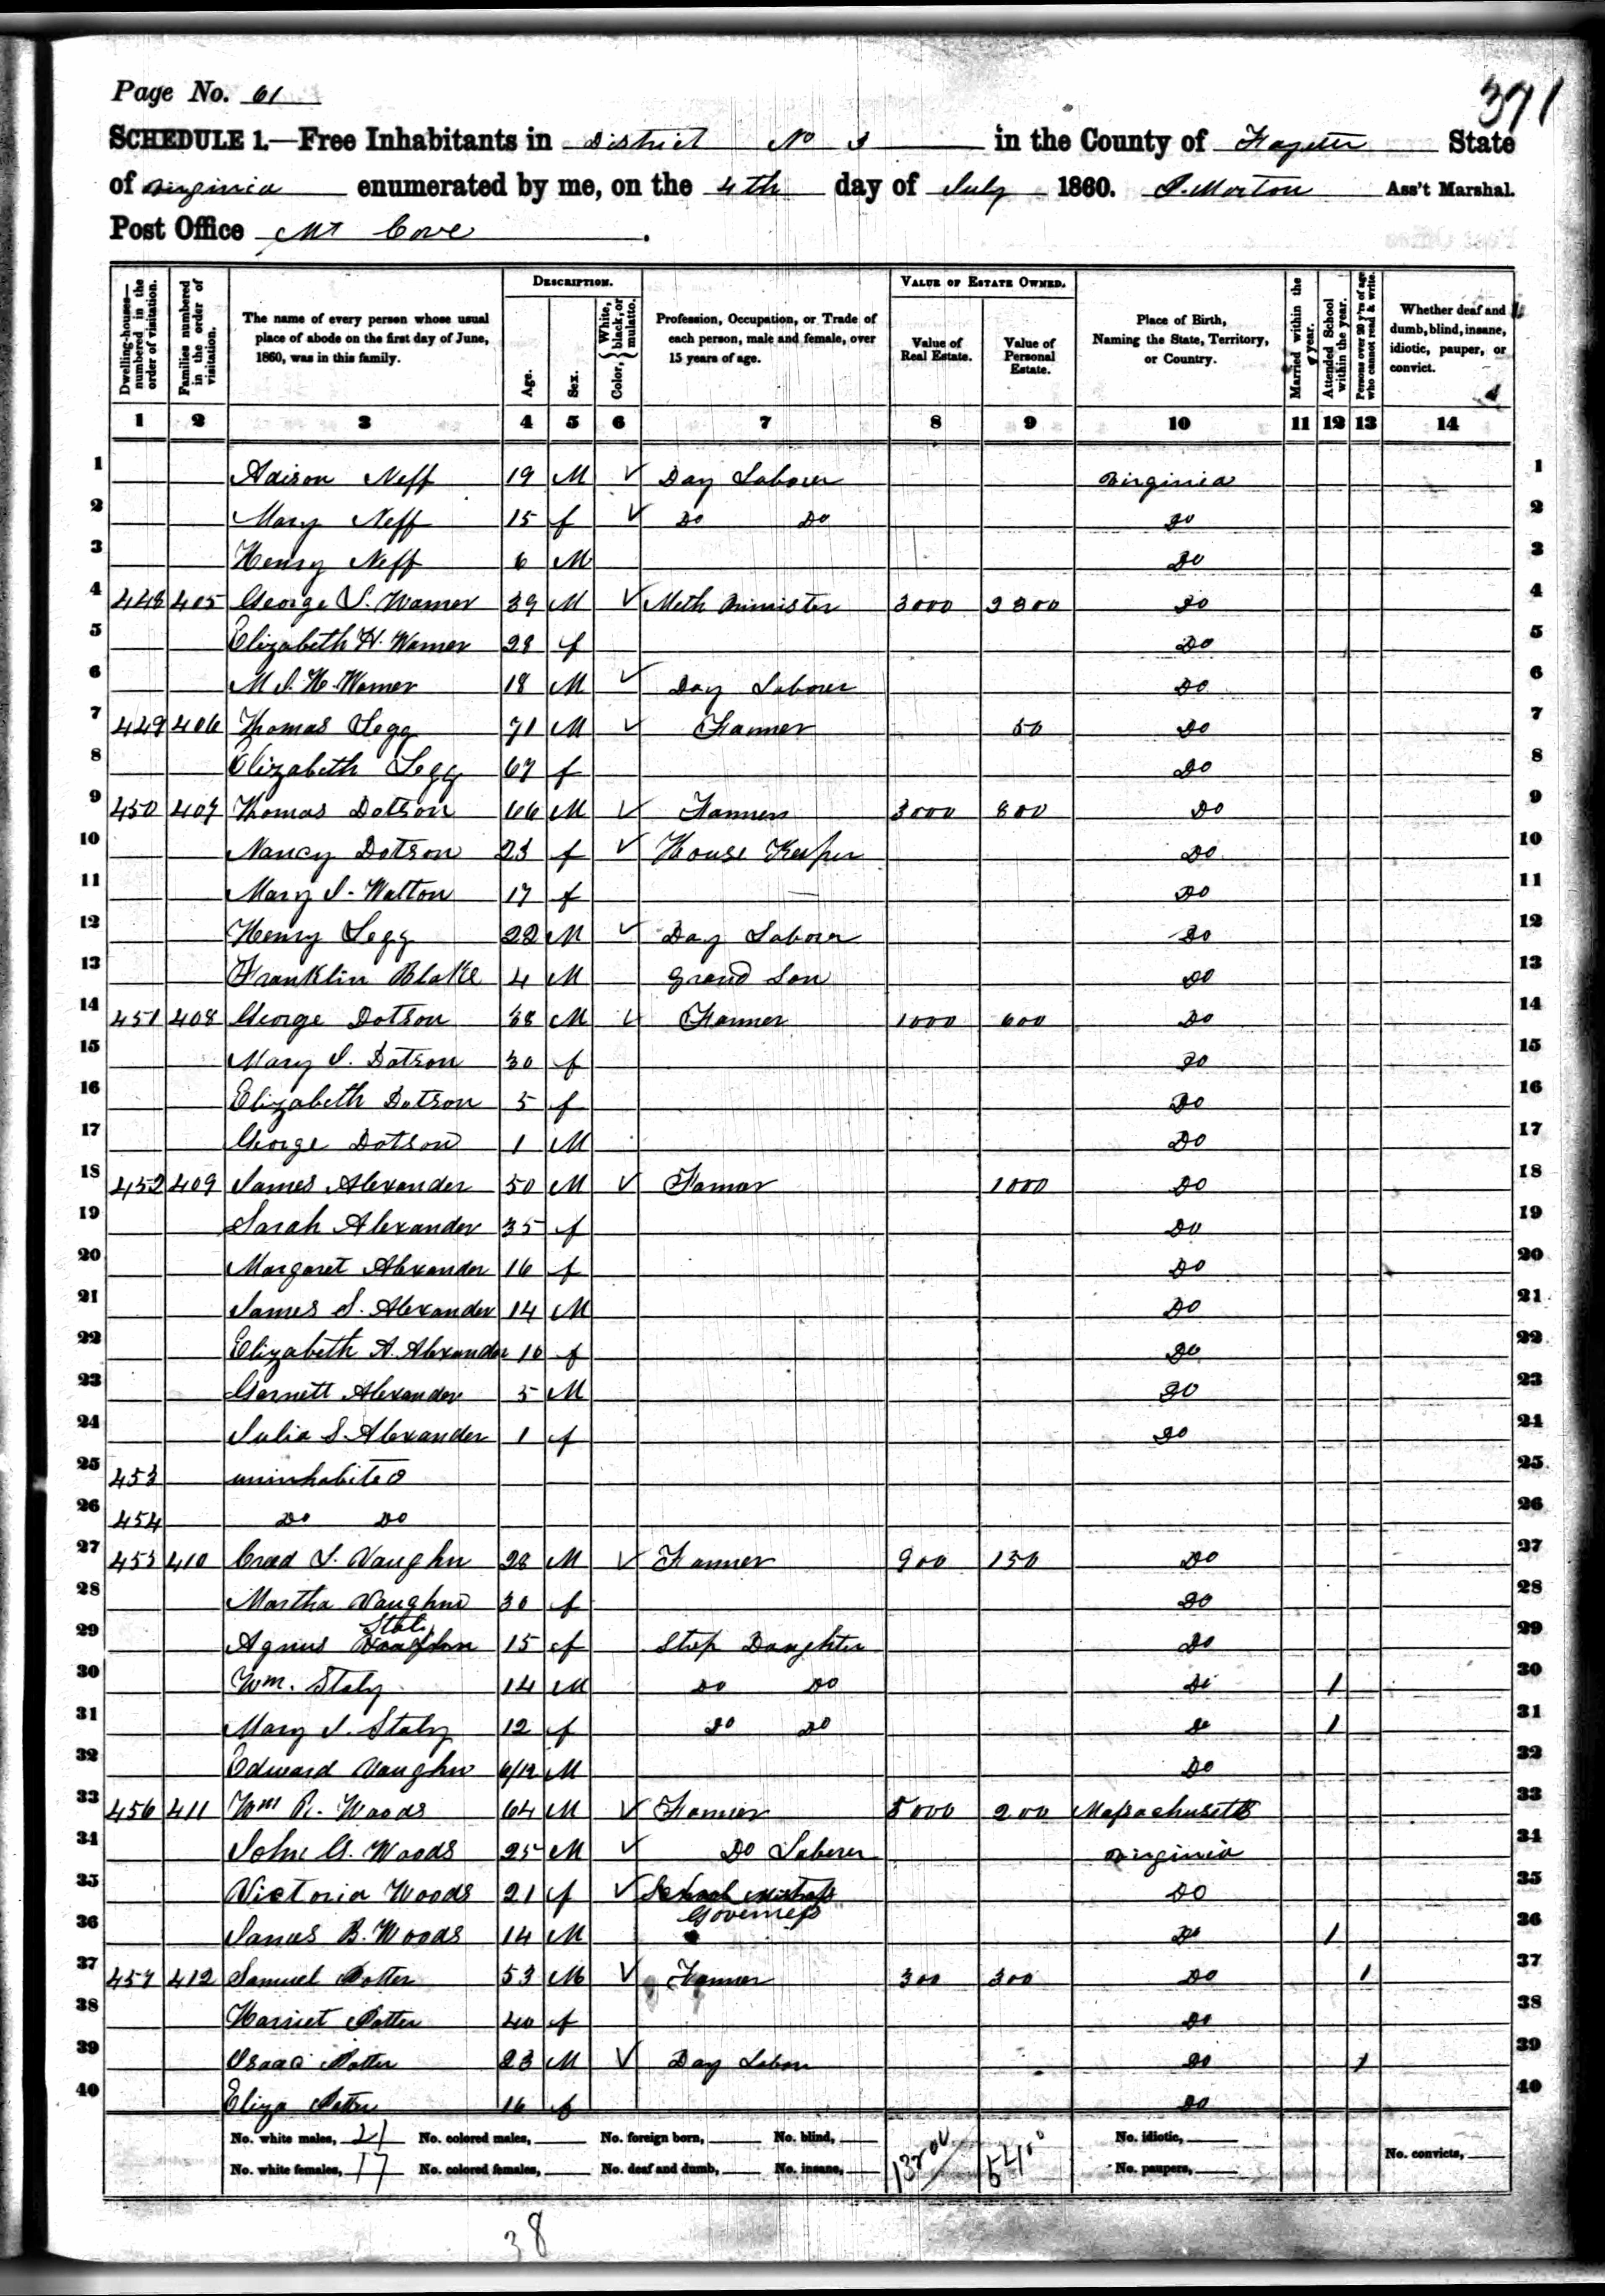 Page No. 61
371
SCHEDULE 1.—Free Inhabitants in District No 3 in the County of Fayette State
of Virginia enumerated by me, on the 4th day of July 1860. P. Morton Ass't Marshal.
Post Office Mt Cove.
Dwelling-houses—numbered in the order of visitation.
Families numbered in the order of visitation.
The name of every person whose usual place of abode on the first day of June, 1860, was in this family.
DESCRIPTION.
Age.
Sex.
Color, { White, black, or mulatto.
Profession, Occupation, or Trade of each person, male and female, over 15 years of age.
VALUE OF ESTATE OWNED.
Value of Real Estate.
Value of Personal Estate.
Place of Birth, Naming the State, Territory, or Country.
Married within the year.
Attended School within the year.
Persons over 20 y'rs of age who cannot read & write.
Whether deaf and dumb, blind, insane, idiotic, pauper, or convict.
1 2 3 4 5 6 7 8 9 10 11 12 13 14
1 Adison Neff 19 M ✓ Day Laborer Virginia 1
2 Mary Neff 15 f ✓ Do Do Do 2
3 Henry Neff 6 M Do 3
4 448 405 George S. Warner 39 M ✓ Meth Minister 3000 2300 Do 4
5 Elizabeth H. Warner 28 f Do 5
6 M S. W. Warner 18 M ✓ Day Laborer Do 6
7 449 406 Thomas Legg 71 M ✓ Farmer 50 Do 7
8 Elizabeth Legg 67 f Do 8
9 450 407 Thomas Dotson 66 M ✓ Farmer 3000 800 Do 9
10 Nancy Dotson 23 f ✓ House Keeper Do 10
11 Mary J. Walton 17 f Do 11
12 Henry Legg 22 M ✓ Day Laborer Do 12
13 Franklin Blake 4 M Grand Son Do 13
14 451 408 George Dotson 38 M ✓ Farmer 1000 600 Do 14
15 Mary J. Dotson 30 f Do 15
16 Elizabeth Dotson 5 f Do 16
17 George Dotson 1 M Do 17
18 452 409 James Alexander 50 M ✓ Farmer 1000 Do 18
19 Sarah Alexander 35 f Do 19
20 Margaret Alexander 16 f Do 20
21 James S. Alexander 14 M Do 21
22 Elizabeth A. Alexander 10 f Do 22
23 Garnett Alexander 5 M Do 23
24 Julia S. Alexander 1 f Do 24
25 453 uninhabited 25
26 454 Do Do 26
27 455 410 Cread S. Vaughn 28 M ✓ Farmer 900 150 Do 27
28 Martha Vaughn 30 f Do 28
29 Agnus Vaughn 15 f Step Daughter Do 29
30 Wm. Staly 14 M Do Do Do 1 30
31 Mary J. Staly 12 f Do Do Do 1 31
32 Edward Vaughn 6/12 M Do 32
33 456 411 Wm R. Woods 64 M ✓ Farmer 5000 200 Massachusetts 33
34 John G. Woods 25 M ✓ Do Laborer Virginia 34
35 Victoria Woods 21 f ✓ School Mistress Do 35
Governess
36 James B. Woods 14 M Do 1 36
37 457 412 Samuel Potter 53 M ✓ Farmer 300 300 Do 1 37
38 Harriet Potter 40 f Do 38
39 Isaac Potter 23 M ✓ Day Labor Do 1 39
40 Eliza Potter 16 f Do 40
No. white males, 21 No. colored males, No. foreign born, No. blind, 13200 5400 No. idiotic,
No. white females, 17 No. colored females, No. deaf and dumb, No. insane, No. paupers, No. convicts,
38